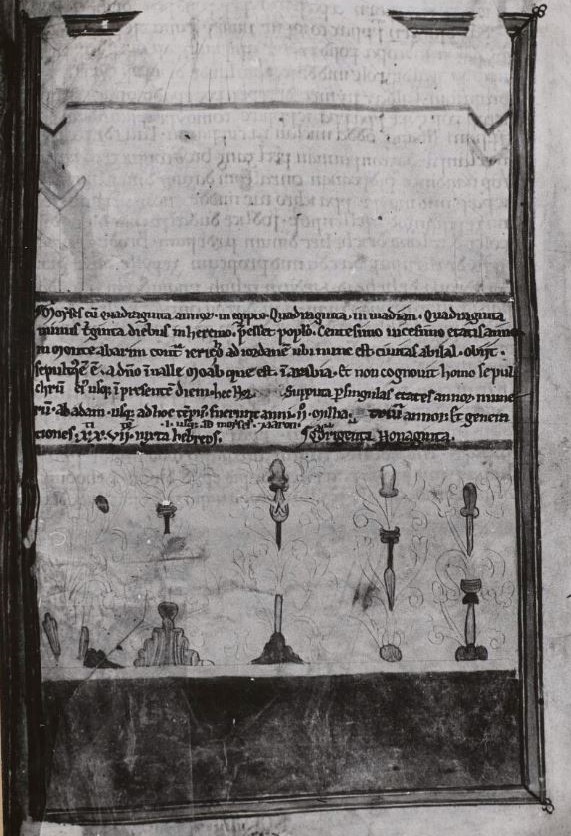 Moyses cũ quadraginta annor in egipto. Quadraginta in madian. Quadraginta
minus t͛ginta diebus in heremo. p̃esset poplo. Centesimo uicesimo etatis anno
in monte abarim cont̃ iericho ad iordanẽ ubi nunc est ciuitas abilal. obiit.
sepultq̃ ẽ. a dño in ualle moab que est in arabia. Et non cognouit homo sepul
chrũ eỉ usq̃ ĩ presentẽ diem hec Supputa p singulas etates annor nume
rũ ab adam usq̃ ad hoc tẽpꝰ. fuerunt anni milha triũ annor Et genera
.i. usq̃ ad moysen. Aaron.
tiones. x. x. vij. iuxta hebreos. Nonaginta.